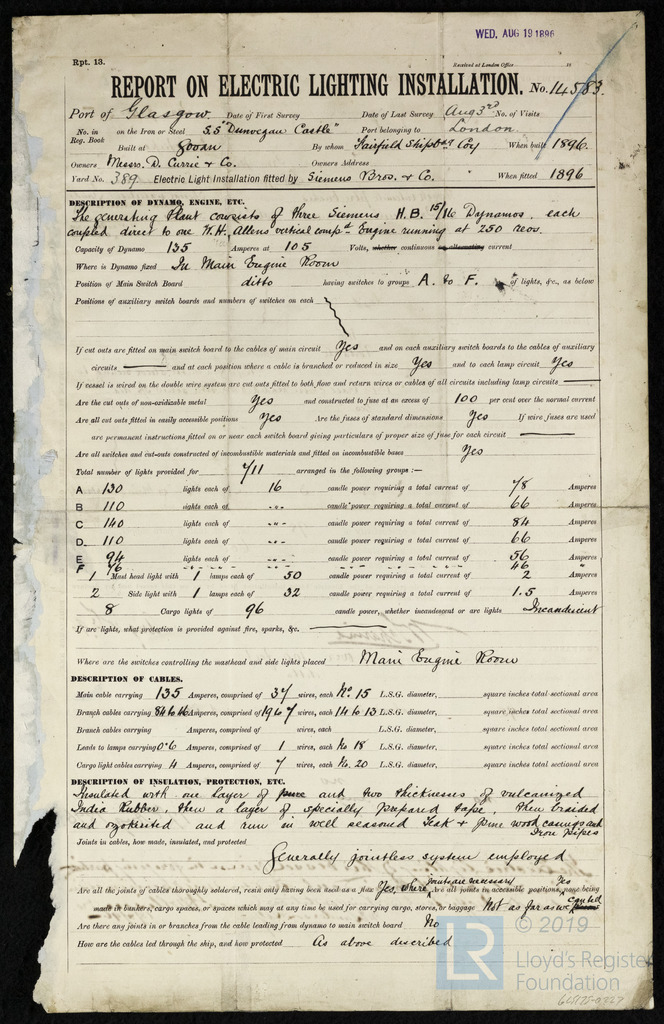 WED. AUG 19 1896
Rpt. 13.
Received at London Office 18
REPORT ON ELECTRIC LIGHTING INSTALLATION. No. 14583.
Port of Glasgow Date of First Survey Date of Last Survey Aug 3rd No. of Visits
No. in on the Iron or Steel S.S "Dunvegan Castle" Port belonging to London
Reg. Book Built at Govan By whom Fairfield Shipbdg Coy When built 1896.
Owners Messrs. D. Currie & Co. Owners Address
Yard No. 389 Electric Light Installation fitted by Siemens Bros. & Co. When fitted 1896
DESCRIPTION OF DYNAMO, ENGINE, ETC.
The generating Plant consists of three Siemens H.B. 15/16 Dynamos, each
coupled direct to one W.H. Allens vertical compd Engine running at 250 revs.
Capacity of Dynamo 135 Amperes at 105 Volts, whether continuous or alternating current
Where is Dynamo fixed In Main Engine Room
Position of Main Switch Board ditto having switches to groups A. to F. of lights, &c., as below
Positions of auxiliary switch boards and numbers of switches on each
If cut outs are fitted on main switch board to the cables of main circuit Yes and on each auxiliary switch boards to the cables of auxiliary
circuits and at each position where a cable is branched or reduced in size Yes and to each lamp circuit Yes
If vessel is wired on the double wire system are cut outs fitted to both flow and return wires or cables of all circuits including lamp circuits
Are the cut outs of non-oxidizable metal Yes and constructed to fuse at an excess of 100 per cent over the normal current
Are all cut outs fitted in easily accessible positions Yes Are the fuses of standard dimensions Yes If wire fuses are used
are permanent instructions fitted on or near each switch board giving particulars of proper size of fuse for each circuit
Are all switches and cut-outs constructed of incombustible materials and fitted on incombustible bases Yes
Total number of lights provided for 711 arranged in the following groups :—
A 130 lights each of 16 candle power requiring a total current of 78 Amperes
B 110 lights each of " " candle power requiring a total current of 66 Amperes
C 140 lights each of " " candle power requiring a total current of 84 Amperes
D 110 lights each of " " candle power requiring a total current of 66 Amperes
E 94 lights each of " " candle power requiring a total current of 56 Amperes
F 76 46 "
1 Mast head light with 1 lamps each of 50 candle power requiring a total current of 2 Amperes
2 Side light with 1 lamps each of 32 candle power requiring a total current of 1.5 Amperes
8 Cargo lights of 96 candle power, whether incandescent or arc lights Incandescent
If arc lights, what protection is provided against fire, sparks, &c.
Where are the switches controlling the masthead and side lights placed Main Engine Room
DESCRIPTION OF CABLES.
Main cable carrying 135 Amperes, comprised of 37 wires, each No 15 L.S.G. diameter, square inches total sectional area
Branch cables carrying 84 to 46 Amperes, comprised of 19 & 7 wires, each 14 to 13 L.S.G. diameter, square inches total sectional area
Branch cables carrying Amperes, comprised of wires, each L.S.G. diameter, square inches total sectional area
Leads to lamps carrying 0.6 Amperes, comprised of 1 wires, each No 18 L.S.G. diameter, square inches total sectional area
Cargo light cables carrying 4 Amperes, comprised of 7 wires, each No. 20 L.S.G. diameter, square inches total sectional area
DESCRIPTION OF INSULATION, PROTECTION, ETC.
Insulated with one layer of pure and two thicknesses of vulcanized
India Rubber, then a layer of specially prepared tape, then braided
and ozokerited and run in well seasoned Teak & pine wood casings and
Iron pipes
Joints in cables, how made, insulated, and protected
Generally jointless system employed
Are all the joints of cables thoroughly soldered, resin only having been used as a flux Yes, where joints are necessary Are all joints in accessible positions, none being Yes
made in bunkers, cargo spaces, or spaces which may at any time be used for carrying cargo, stores, or baggage Not as far as we can led
Are there any joints in or branches from the cable leading from dynamo to main switch board No
How are the cables led through the ship, and how protected As above described
LR
© 2019
Lloyd's Register
Foundation